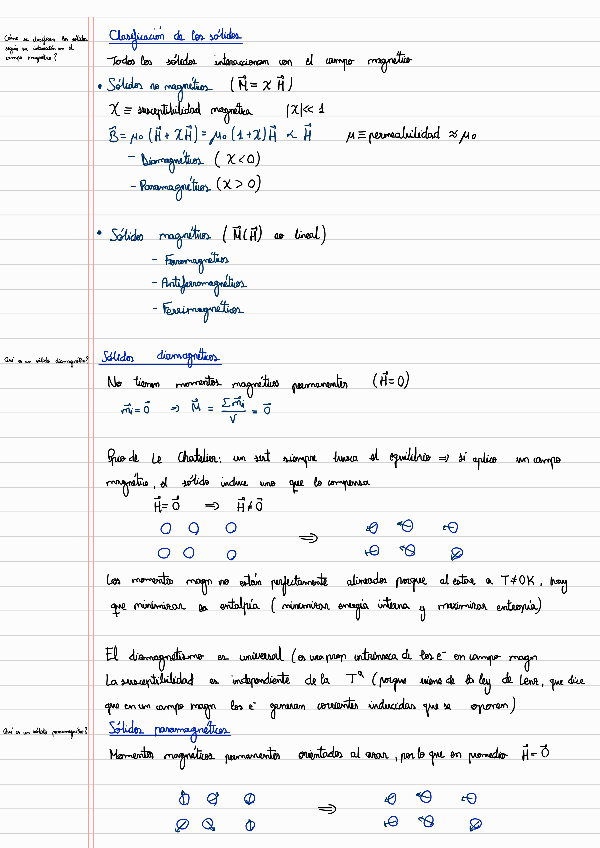 Clasificación de los sólidos
¿Cómo se clasifican los sólidos
según su interacción con el
campo magnético?
Todos los sólidos interaccionan con el campo magnético
• Sólidos no magnéticos (M⃗ = χ H⃗)
χ ≡ susceptibilidad magnética |χ| << 1
B⃗ = μ₀ (H⃗ + χH⃗) = μ₀ (1+χ) H⃗ ∝ H⃗ μ ≡ permeabilidad ≈ μ₀
- Diamagnéticos (χ < 0)
- Paramagnéticos (χ > 0)
• Sólidos magnéticos (M⃗(H⃗) no lineal)
- Ferromagnéticos
- Antiferromagnéticos
- Ferrimagnéticos
¿Qué es un sólido diamagnético?
Sólidos diamagnéticos
No tienen momentos magnéticos permanentes (H⃗=0)
m⃗ᵢ = 0⃗ ⇒ M⃗ = Σm⃗ᵢ / V = 0⃗
Ppio de Le Chatelier: un sist siempre busca el equilibrio ⇒ si aplico un campo
magnético, el sólido induce uno que lo compensa
H⃗ = 0⃗ ⇒ H⃗ ≠ 0⃗
⇒
Los momentos magn no están perfectamente alineados porque al estar a T≠0K, hay
que minimizar la entalpía (minimizar energía interna y maximizar entropía)
El diamagnetismo es universal (es una prop intrínseca de los e⁻ en campo magn
La susceptibilidad es independiente de la Tª (porque viene de la ley de Lenz, que dice
que en un campo magn los e⁻ generan corrientes inducidas que se oponen)
¿Qué es un sólido paramagnético?
Sólidos paramagnéticos
Momentos magnéticos permanentes orientados al azar, por lo que en promedio H⃗ = 0⃗
⇒